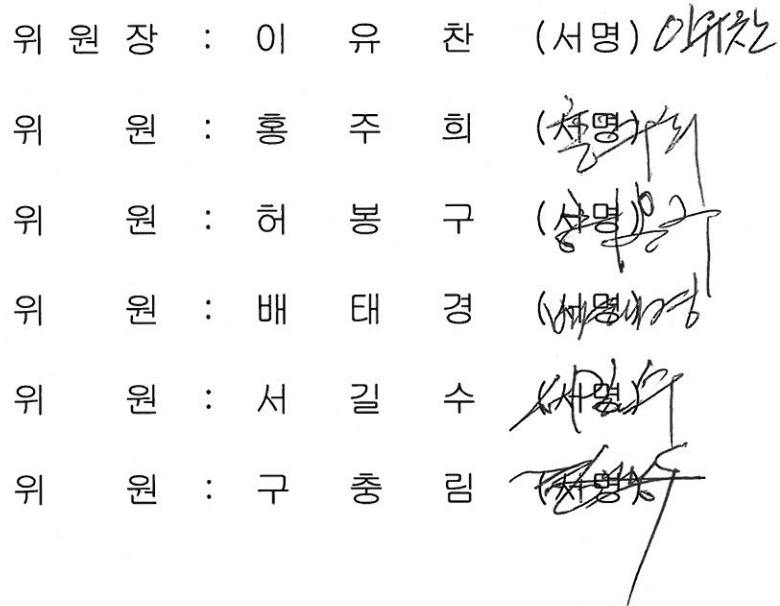 위 원 장 : 이 유 찬 (서명) 이유찬
위 원 : 홍 주 희 (서명)
위 원 : 허 봉 구 (서명)
위 원 : 배 태 경 (서명) 배태경
위 원 : 서 길 수 (서명)
위 원 : 구 충 림 (서명)